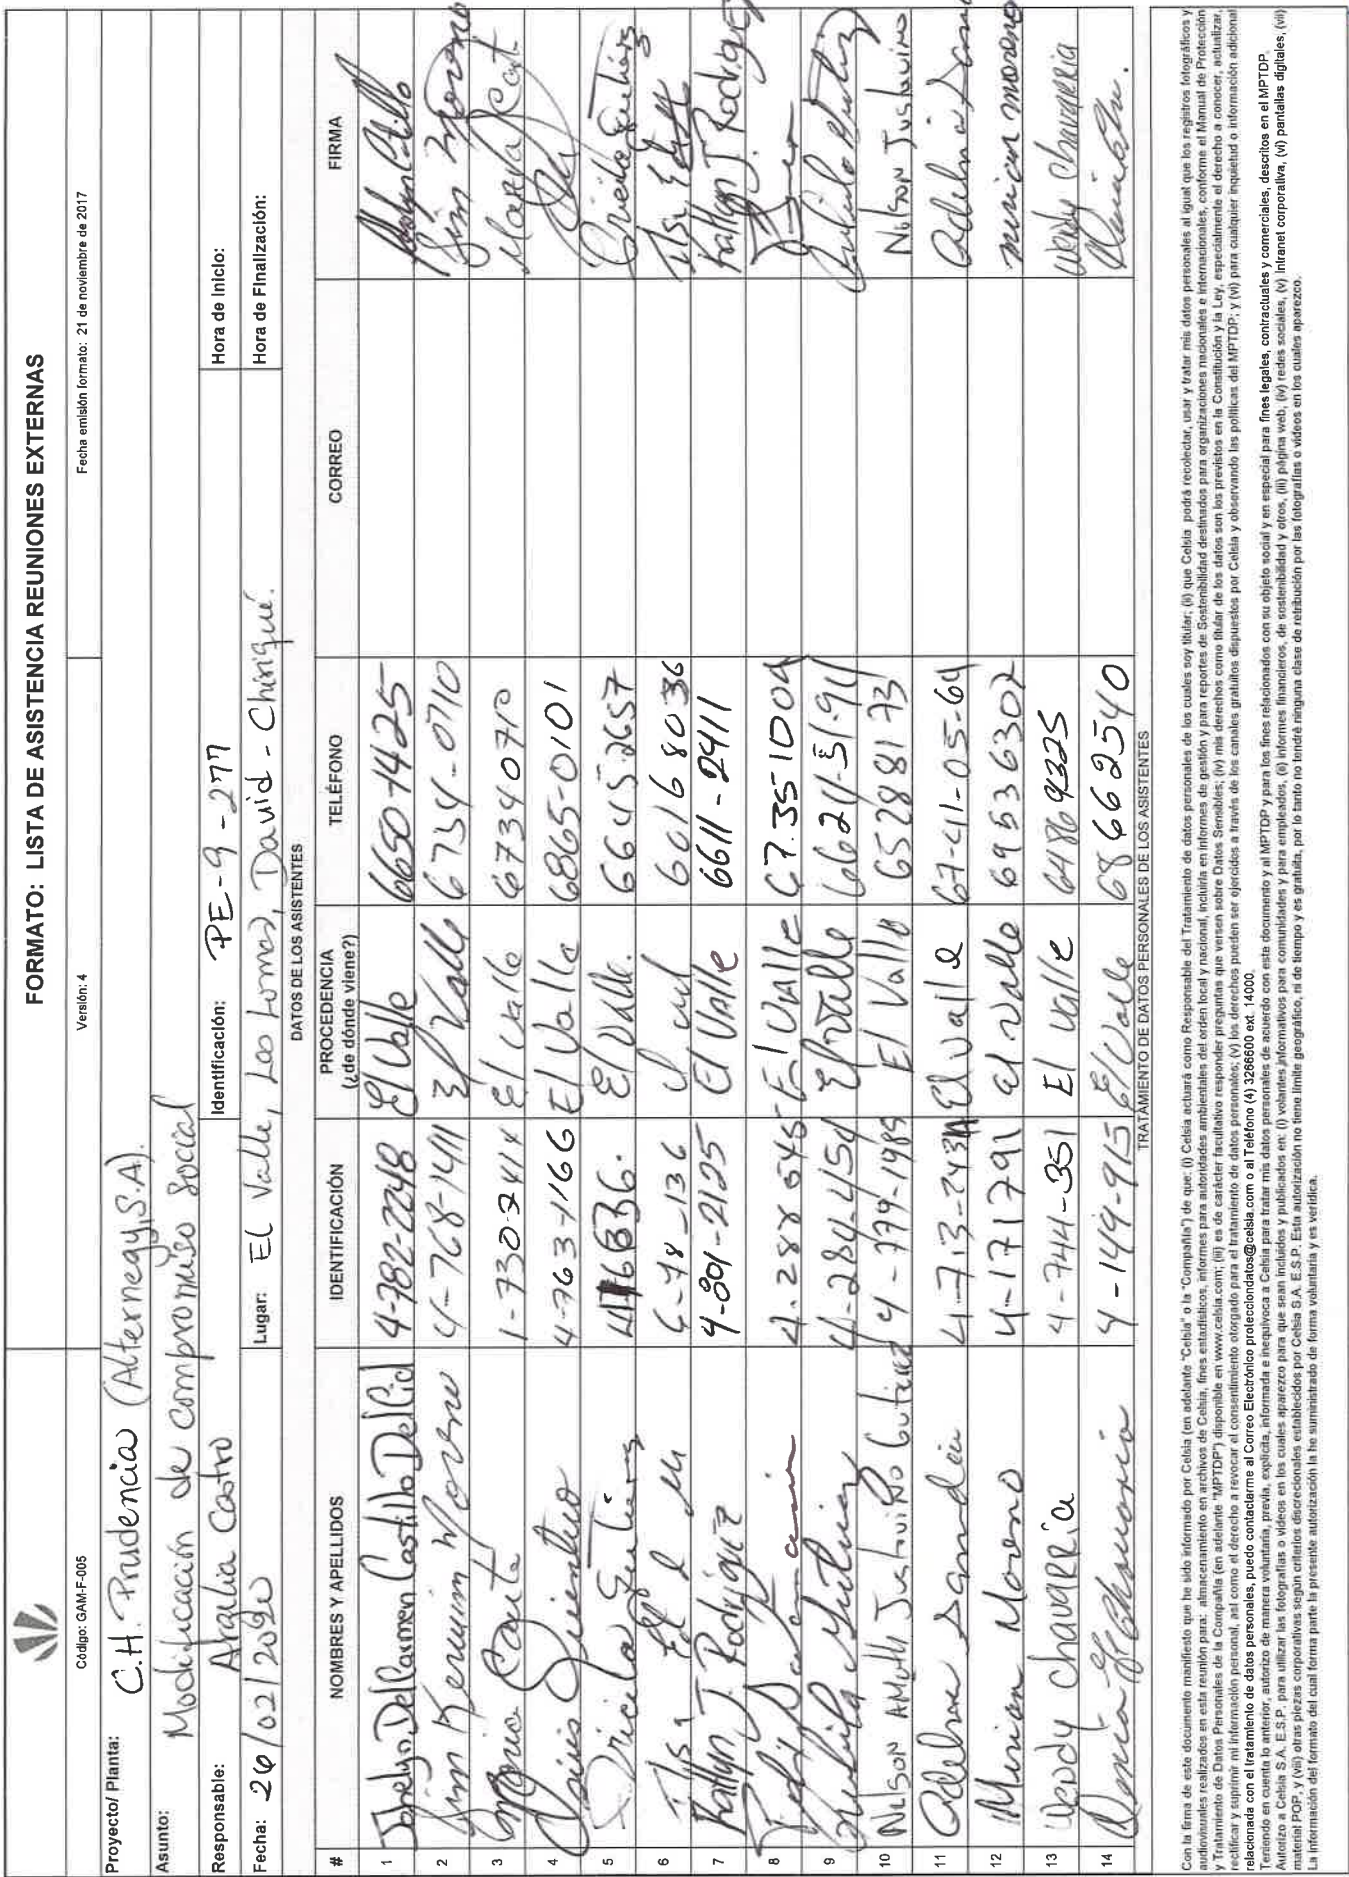 FORMATO: LISTA DE ASISTENCIA REUNIONES EXTERNAS
Código: GAM-F-005 Versión: 4 Fecha emisión formato: 21 de noviembre de 2017
Proyecto/ Planta: C.H. Prudencia (Alternegy, S.A).
Asunto: Modificación de compromiso social
Responsable: Aralia Castro Identificación: PE-9-277 Hora de Inicio:
Fecha: 26/02/2020 Lugar: El Valle, Las Lomas, David - Chiriquí. Hora de Finalización:
DATOS DE LOS ASISTENTES
# NOMBRES Y APELLIDOS IDENTIFICACIÓN PROCEDENCIA (¿de dónde viene?) TELÉFONO CORREO FIRMA
1 Johelyn Del Carmen Castillo Del Cid 4-782-2248 El Valle 6650-1425
2 Moreno 4-768-1411 El Valle 6734-0710 Moreno
3 1-730-2414 El Valle 67340710
4 4-763-1166 El Valle 6865-0101
5 Gricela Gutierrez El Valle. 66452657 Gricela Gutierrez
6 Ilsi 4-78-136 60168036 Ilsi
7 Katlyn J. Rodríguez 4-801-2125 El Valle 6611-2411 Katlyn J. Rodríguez
8 4.288 645 El Valle 67.351004
9 4-284-454 El Valle 6624-51-94
10 Nelson Ameth Justavino Gutierrez 4-779-1985 El Valle 65288173 Nelson Justavino
11 El Valle 67-41-05-64
12 Mirian Moreno 4-171791 el valle 69536302 mirian moreno
13 Wendy Chavarría 4-744-351 El Valle 64869325 Wendy Chavarria
14 4-149-915 El Valle 68662540
TRATAMIENTO DE DATOS PERSONALES DE LOS ASISTENTES
Con la firma de este documento manifiesto que he sido informado por Celsia (en adelante "Celsia" o la "Compañía") de que: (i) Celsia actuará como Responsable del Tratamiento de datos personales de los cuales soy titular; (ii) que Celsia podrá recolectar, usar y tratar mis datos personales al igual que los registros fotográficos y
audiovisuales realizados en esta reunión para: almacenamiento en archivos de Celsia, fines estadísticos, informes para autoridades ambientales del orden local y nacional, incluirla en informes de gestión y para reportes de Sostenibilidad destinados para organizaciones nacionales e internacionales, conforme el Manual de Protección
y Tratamiento de Datos Personales de la Compañía (en adelante "MPTDP") disponible en www.celsia.com; (iii) es de carácter facultativo responder preguntas que versen sobre Datos Sensibles; (iv) mis derechos como titular de los datos son los previstos en la Constitución y la Ley, especialmente el derecho a conocer, actualizar,
rectificar y suprimir mi información personal, así como el derecho a revocar el consentimiento otorgado para el tratamiento de datos personales; (v) los derechos pueden ser ejercidos a través de los canales gratuitos dispuestos por Celsia y observando las políticas del MPTDP; y (vi) para cualquier inquietud o información adicional
relacionada con el tratamiento de datos personales, puedo contactarme al Correo Electrónico protecciondatos@celsia.com o al Teléfono (4) 3266600 ext. 14000.
Teniendo en cuenta lo anterior, autorizo de manera voluntaria, previa, explícita, informada e inequívoca a Celsia para tratar mis datos personales de acuerdo con este documento y al MPTDP y para los fines relacionados con su objeto social y en especial para fines legales, contractuales y comerciales, descritos en el MPTDP.
Autorizo a Celsia S.A. E.S.P. para utilizar las fotografías o videos en los cuales aparezco para que sean incluidos y publicados en: (i) volantes informativos para comunidades y para empleados, (ii) informes financieros, de sostenibilidad y otros, (iii) página web, (iv) redes sociales, (v) Intranet corporativa, (vi) pantallas digitales, (vii)
material POP, y (viii) otras piezas corporativas según criterios discrecionales establecidos por Celsia S.A. E.S.P. Esta autorización no tiene límite geográfico, ni de tiempo y es gratuita, por lo tanto no tendré ninguna clase de retribución por las fotografías o videos en los cuales aparezco.
La información del formato del cual forma parte la presente autorización la he suministrado de forma voluntaria y es verídica.